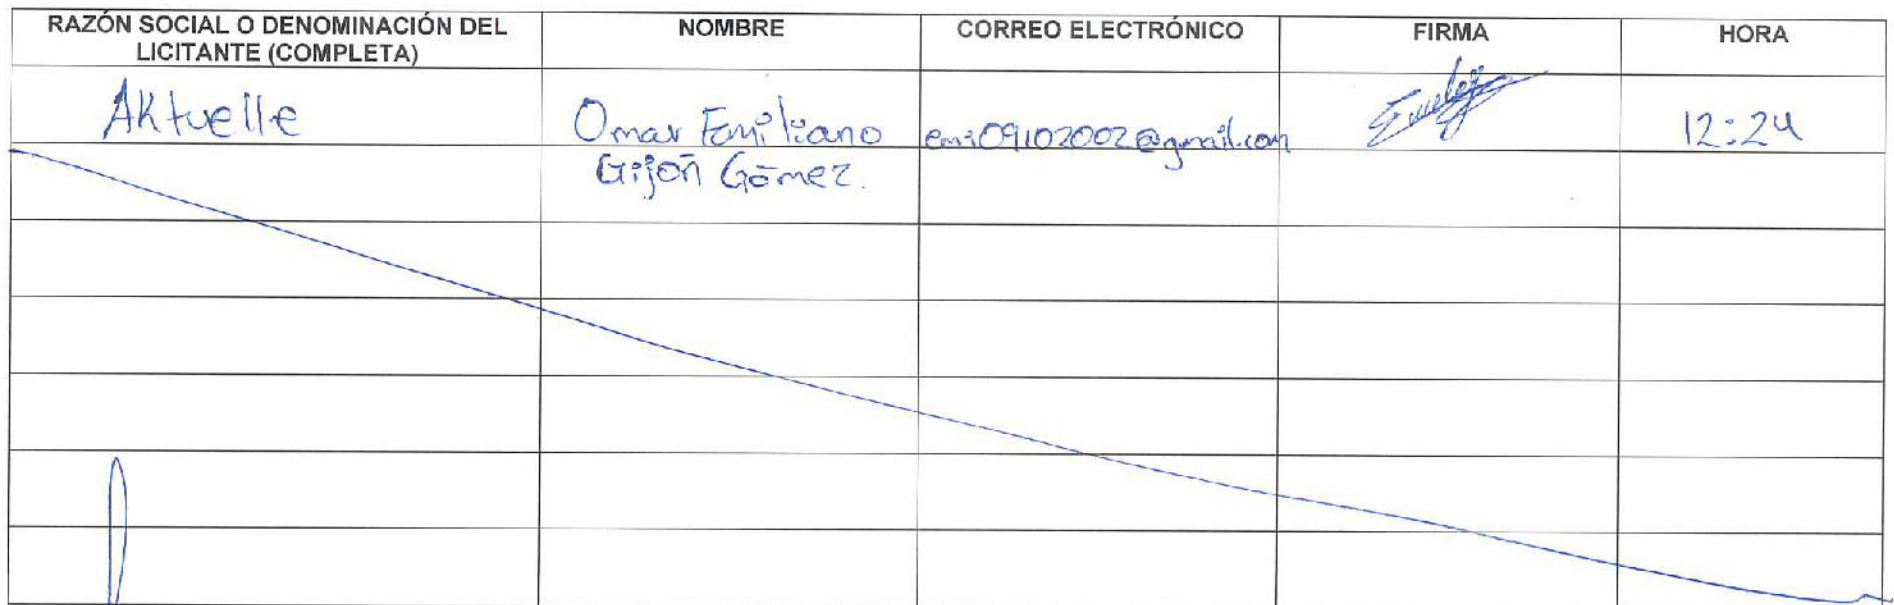 RAZÓN SOCIAL O DENOMINACIÓN DEL
LICITANTE (COMPLETA)
NOMBRE
CORREO ELECTRÓNICO
FIRMA
HORA
Aktuelle
Omar Emiliano
Gijón Gómez.
emi09102002@gmail.com
12:24